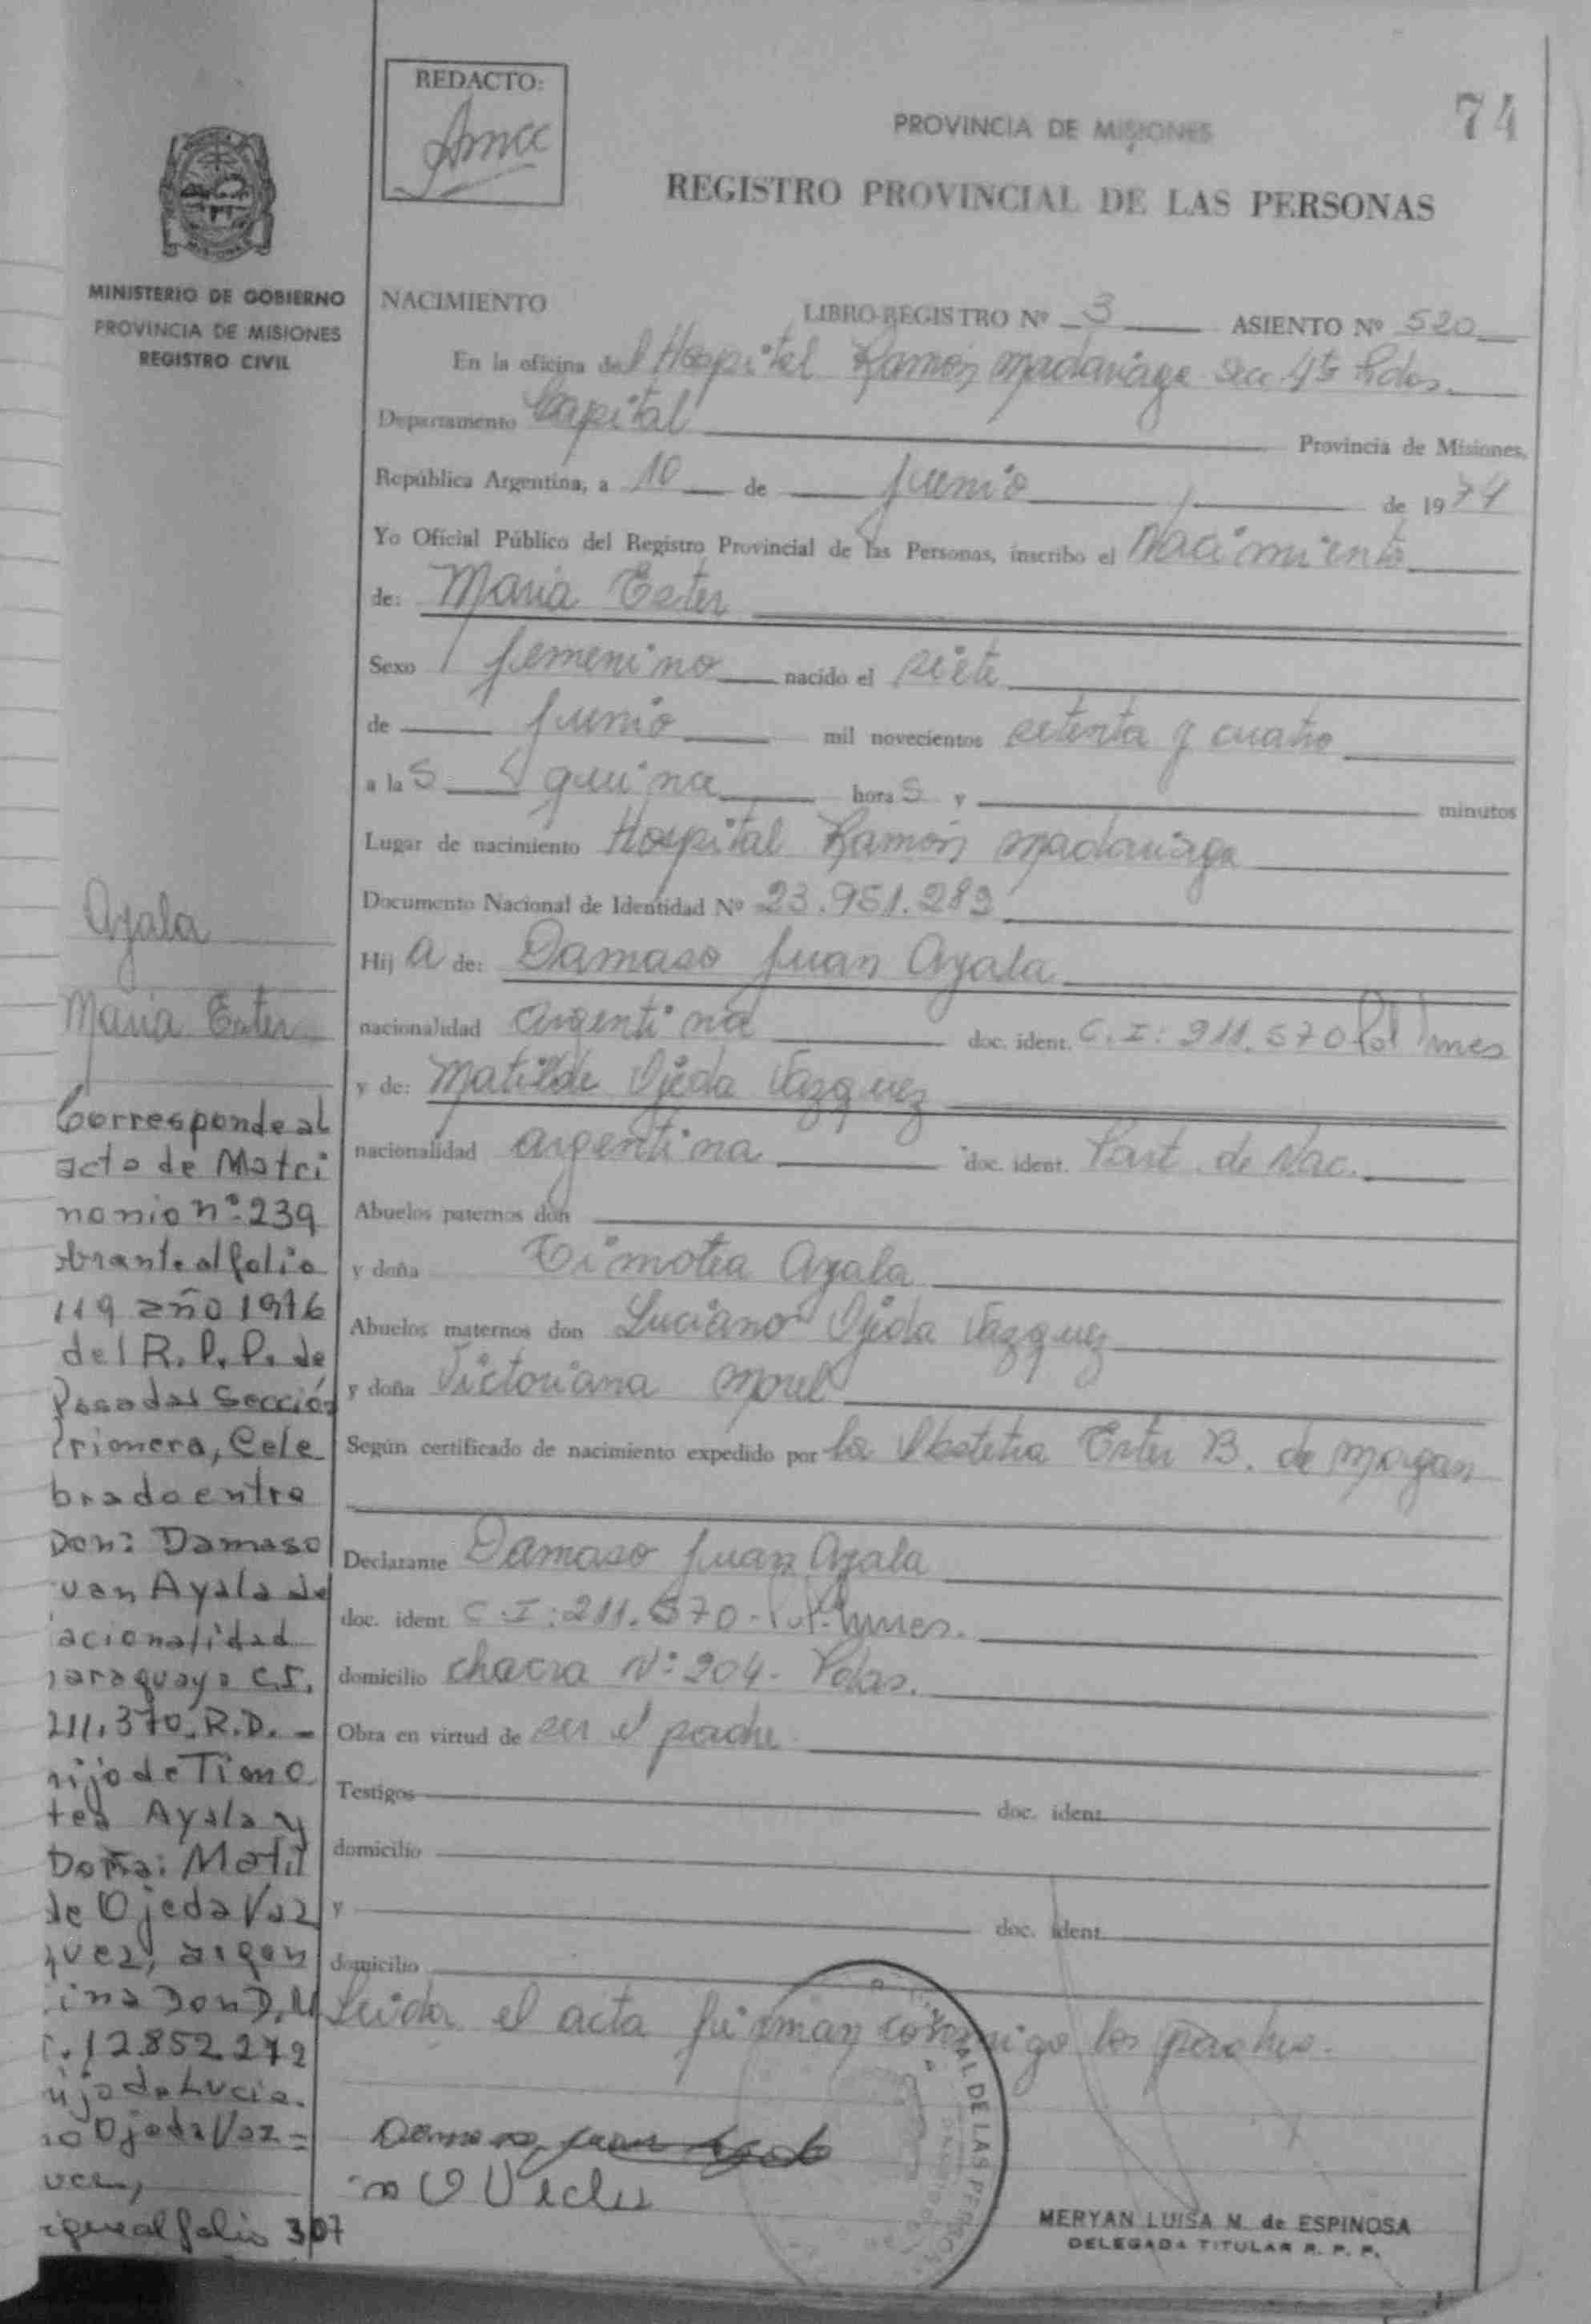 REDACTO:
74
PROVINCIA DE MISIONES
REGISTRO PROVINCIAL DE LAS PERSONAS
MINISTERIO DE GOBIERNO
PROVINCIA DE MISIONES
REGISTRO CIVIL
NACIMIENTO LIBRO-REGISTRO Nº 3 ASIENTO Nº 520
En la oficina del Hospital Ramón Madariaga Secc 4ta Pdas.
Departamento Capital Provincia de Misiones,
República Argentina, a 10 de junio de 1974
Yo Oficial Público del Registro Provincial de las Personas, inscribo el Nacimiento
de: Maria Ester
Sexo femenino nacido el siete
de junio mil novecientos setenta y cuatro
a las quince horas y minutos
Lugar de nacimiento Hospital Ramón Madariaga
Documento Nacional de Identidad Nº 23.951.283
Hij a de: Damaso Juan Ayala
nacionalidad argentina doc. ident. C.I: 211.570 Pol Mnes
y de: Matilde Ojeda Vazquez
nacionalidad argentina doc. ident. Part. de Nac.
Abuelos paternos don
y doña Timotea Ayala
Abuelos maternos don Luciano Ojeda Vazquez
y doña Victoriana Morel
Según certificado de nacimiento expedido por la Obstetra Ester B. de Morgan
Declarante Damaso Juan Ayala
doc. ident. C.I: 211.570 - Pol. Mnes.
domicilio chacra Nº 204 - Pdas.
Obra en virtud de ser el padre
Testigos doc. ident.
domicilio
y doc. ident.
domicilio
Leida el acta firman conmigo los padres.
Damaso Juan Ayala
MERYAN LUISA M. de ESPINOSA
DELEGADA TITULAR R. P. P.
AL DE LAS PERSON
Ayala
Maria Ester
Corresponde al
acta de Matri
nonio nº 239
obrante al folio
119 año 1976
del R. P. P. de
Posadas Sección
Primera, Cele
brado entre
Don: Damaso
uan Ayala de
acionalidad
paraguaya C.I.
211.370. R.D. -
hijo de Timo
tea Ayala y
Doña: Matil
de Ojeda Vaz
quez, argen
ina Don D.N
I. 12852272
hija de Lucia
no Ojeda Vaz=
uez,
igue al folio 307